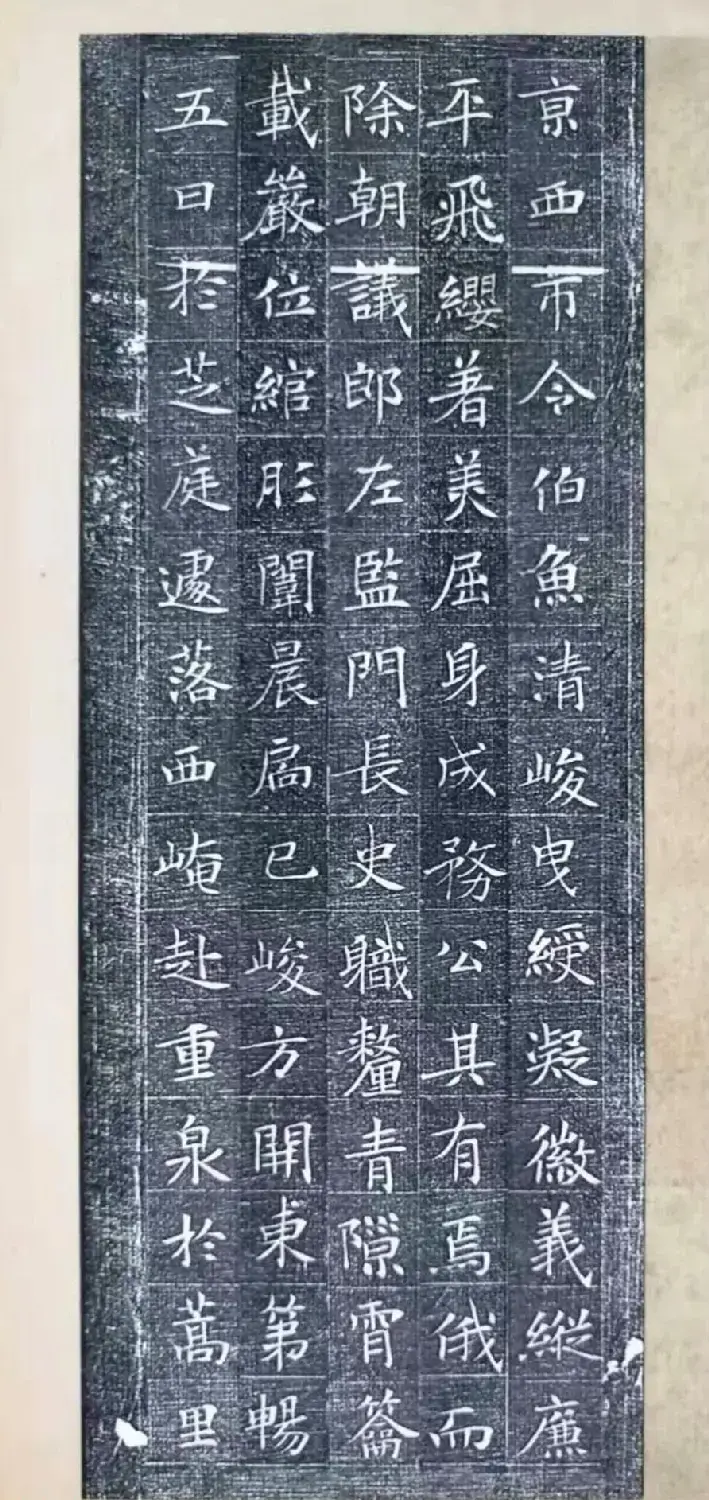 京西市令伯魚清峻曳綬凝徽義縱廉
平飛纓著美屈身成務公其有焉俄而
除朝議郎左監門長史職釐青隙宵籥
載嚴位綰彤闈晨扄已峻方開東第暢
五日於芝莚遽落西崦赴重泉於蒿里